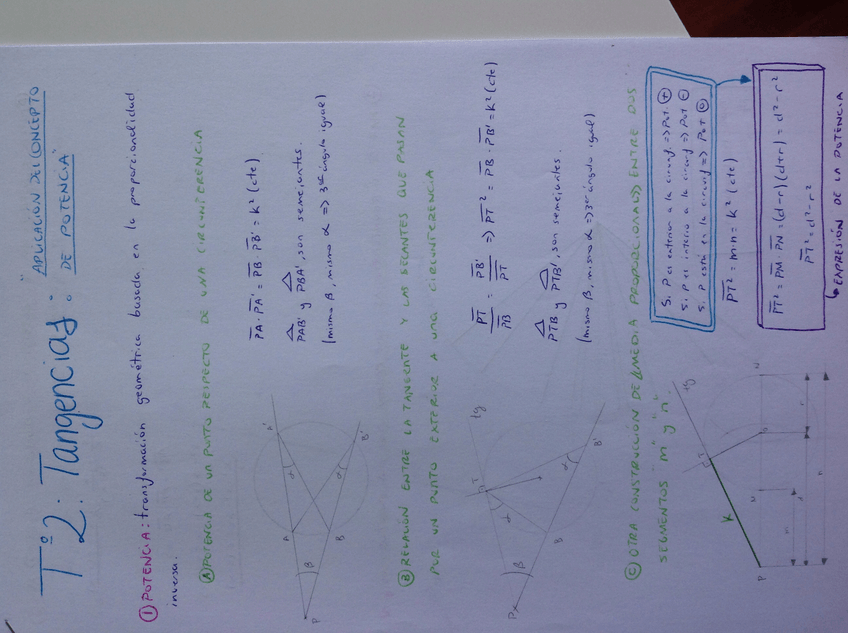 Tº2: Tangencias: "APLICACIÓN DEL CONCEPTO
DE POTENCIA"
① POTENCIA: transformación geométrica basada en la proporcionalidad
inversa.
Ⓐ POTENCIA DE UN PUNTO RESPECTO DE UNA CIRCUNFERENCIA
P
A
B
A'
B'
β
α
α
PA · PA' = PB · PB' = K² (cte)
PAB' y PBA', son semejantes.
(mismo β, mismo α => 3er ángulo igual)
Ⓑ RELACIÓN ENTRE LA TANGENTE Y LAS SECANTES QUE PASAN
POR UN PUNTO EXTERIOR A UNA CIRCUNFERENCIA
P
β
T
tg
α
B
α
B'
PT/PB = PB'/PT => PT² = PB · PB' = K² (cte)
PTB y PTB', son semejantes.
(mismo β, mismo α => 3er ángulo igual)
Ⓒ OTRA CONSTRUCCIÓN DE (MEDIA PROPORCIONAL) ENTRE DOS
SEGMENTOS "m" y "n".
P
K
T
tg
M
O
N
m
d
r
n
Si P es exterior a la circunf => Pot ⊕
Si P es interior a la circunf => Pot ⊖
Si P está en la circunf => Pot ⓪
PT² = m·n = K² (cte)
PT² = PM · PN = (d-r)(d+r) = d² - r²
PT² = d² - r²
↳ EXPRESIÓN DE LA POTENCIA